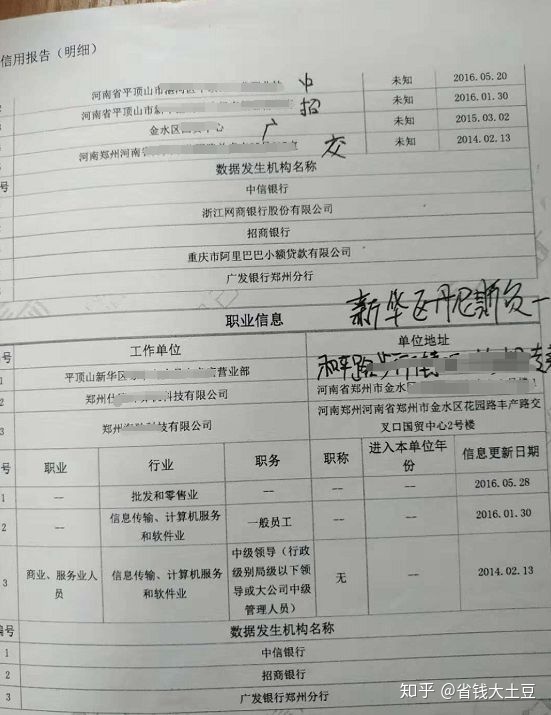 信用报告（明细）
河南省平顶山市 中 未知 2016.05.20
2 河南省平顶山市新 招 未知 2016.01.30
3 金水区 中心 广 未知 2015.03.02
河南郑州河南省 交 未知 2014.02.13
号 数据发生机构名称
中信银行
浙江网商银行股份有限公司
招商银行
重庆市阿里巴巴小额贷款有限公司
广发银行郑州分行
新华区丹尼斯负一
职业信息
编号 工作单位 单位地址
平顶山新华区 营业部 和平路
2 郑州仕 科技有限公司 河南省郑州市金水区
3 郑州 科技有限公司 河南郑州河南省郑州市金水区花园路丰产路交
叉口国贸中心2号楼
号 职业 行业 职务 职称 进入本单位年份 信息更新日期
1 -- 批发和零售业 -- -- -- 2016.05.28
2 -- 信息传输、计算机服务和软件业 一般员工 -- -- 2016.01.30
3 商业、服务业人员 信息传输、计算机服务和软件业 中级领导（行政级别局级以下领导或大公司中级管理人员） 无 -- 2014.02.13
编号 数据发生机构名称
1 中信银行
2 招商银行
3 广发银行郑州分行
知乎 @省钱大土豆